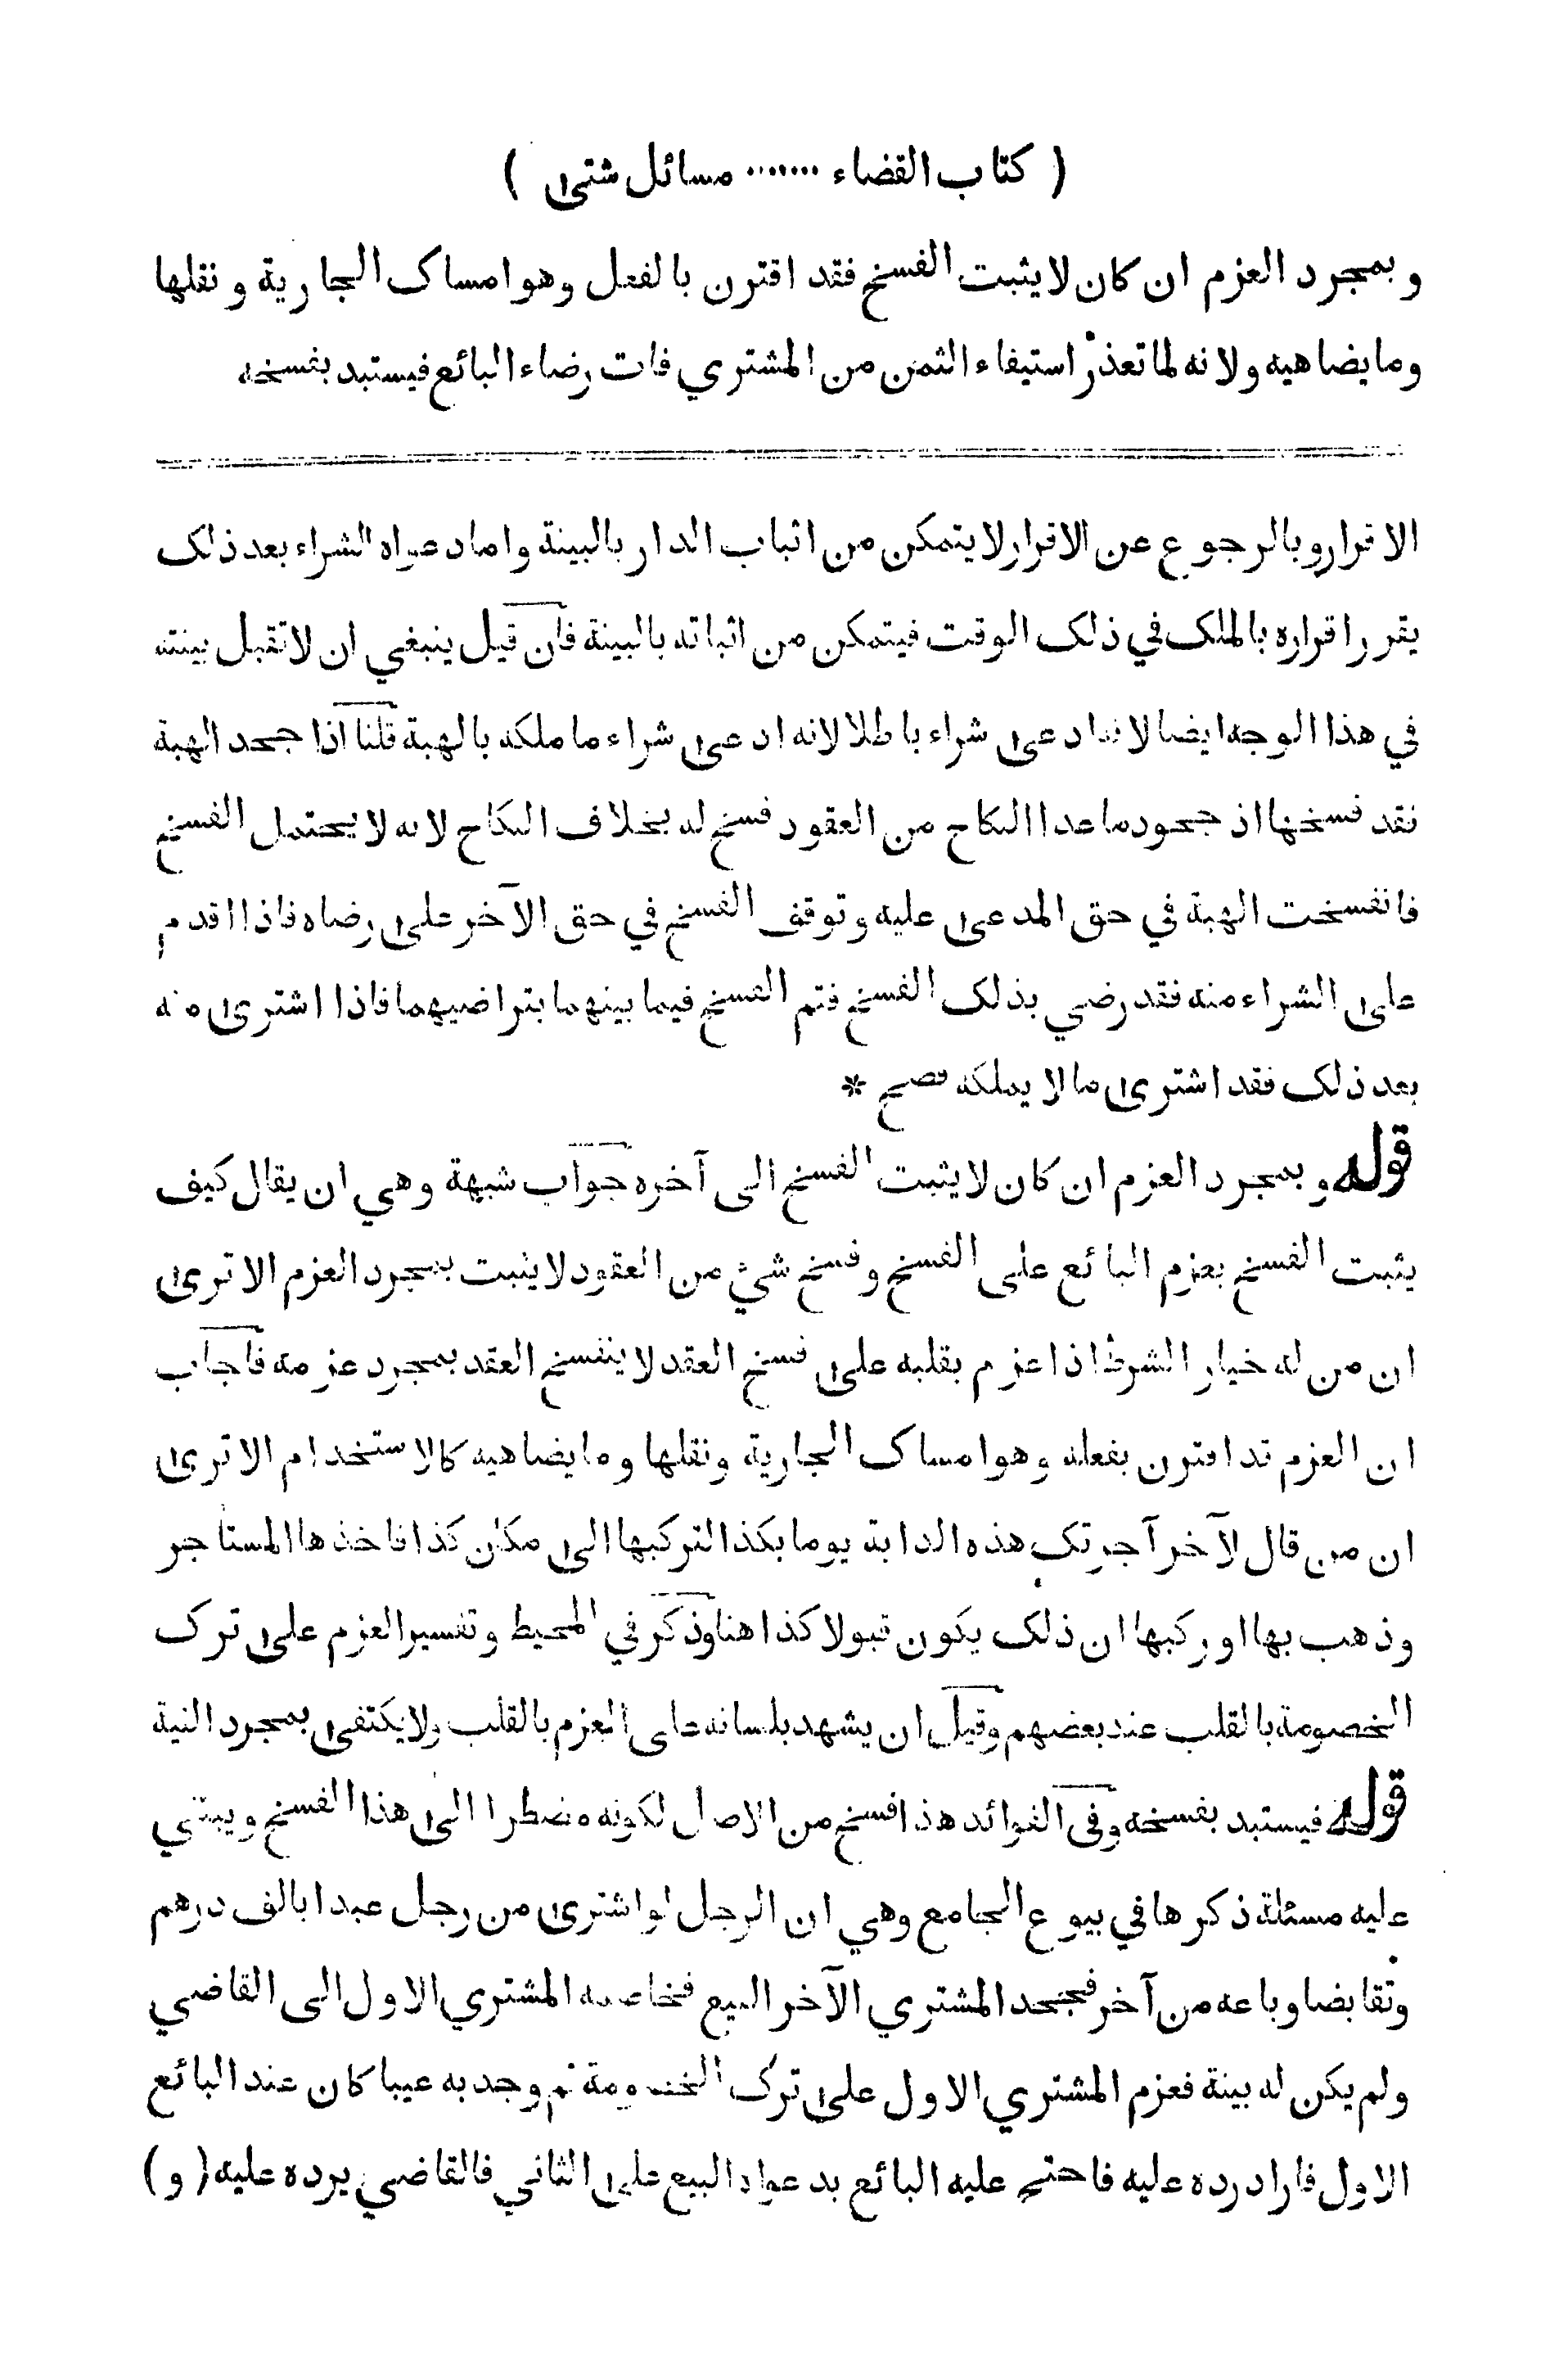 ( كتاب القضاء ....... مسائل شتى )
وبمجرد العزم ان كان لا يثبت الفسخ فقد اقترن بالفعل وهو امساك الجارية ونقلها
وما يضاهيه ولانه لما تعذر استيفاء الثمن من المشتري فات رضاء البائع فيستبد بفسخه
الاقرار وبالرجوع عن الاقرار لا يتمكن من اثبات الدار بالبينة واما دعواه الشراء بعد ذلك
يقرر اقراره بالملك في ذلك الوقت فيتمكن من اثباته بالبينة فان قيل ينبغي ان لا تقبل بينته
في هذا الوجه ايضا لانه ادعى شراء باطلا لانه ادعى شراء ما ملكه بالهبة قلنا اذا جحد الهبة
نقد فسخها اذ جحود ما عدا النكاح من العقود فسخ له بخلاف النكاح لانه لا يحتمل الفسخ
فانفسخت الهبة في حق المدعى عليه وتوقف الفسخ في حق الآخر على رضاه فاذا اقدم
على الشراء منه فقد رضي بذلك الفسخ فتم الفسخ فيما بينهما بتراضيهما فاذا اشترى منه
بعد ذلك فقد اشترى ما لا يملكه فصح *
قوله وبمجرد العزم ان كان لا يثبت الفسخ الى آخره جواب شبهة وهي ان يقال كيف
يثبت الفسخ بعزم البائع على الفسخ وفسخ شئ من العقود لا يثبت بمجرد العزم الا ترى
ان من له خيار الشرط اذا عزم بقلبه على فسخ العقد لا ينفسخ العقد بمجرد عزمه فاجاب
ان العزم قد اقترن بفعله وهو امساك الجارية ونقلها وما يضاهيه كالاستخدام الا ترى
ان من قال لآخر آجرتك هذه الدابة يوما بكذا لتركبها الى مكان كذا فاخذها المستاجر
وذهب بها او ركبها ان ذلك يكون قبولا كذا هنا وذكر في المحيط وتفسير العزم على ترك
الخصومة بالقلب عند بعضهم وقيل ان يشهد بلسانه على العزم بالقلب ولا يكتفى بمجرد النية
قوله فيستبد بفسخه وفى الفوائد هذا فسخ من الاصل لكونه مضطرا الى هذا الفسخ ويبتني
عليه مسئلة ذكرها في بيوع الجامع وهي ان الرجل لو اشترى من رجل عبدا بالف درهم
وتقابضا وباعه من آخر فجحد المشتري الآخر البيع فخاصمه المشتري الاول الى القاضي
ولم يكن له بينة فعزم المشتري الاول على ترك الخصومة ثم وجد به عيبا كان عند البائع
الاول فاراد رده عليه فاحتج عليه البائع بدعواه البيع على الثاني فالقاضي يرده عليه ( و )